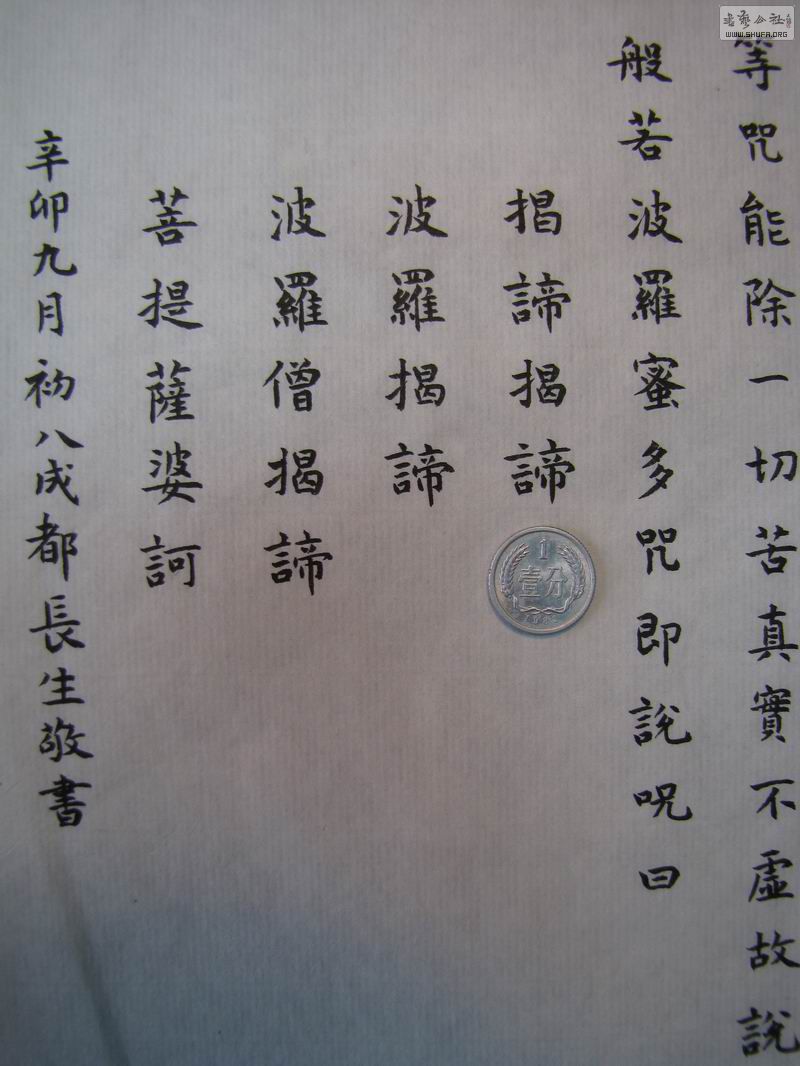 等咒能除一切苦真實不虛故說
般若波羅蜜多咒即說呪曰
揭諦揭諦
波羅揭諦
波羅僧揭諦
菩提薩婆訶
辛卯九月初八成都長生敬書
1
壹分
書藝公社
WWW.SHUFA.ORG